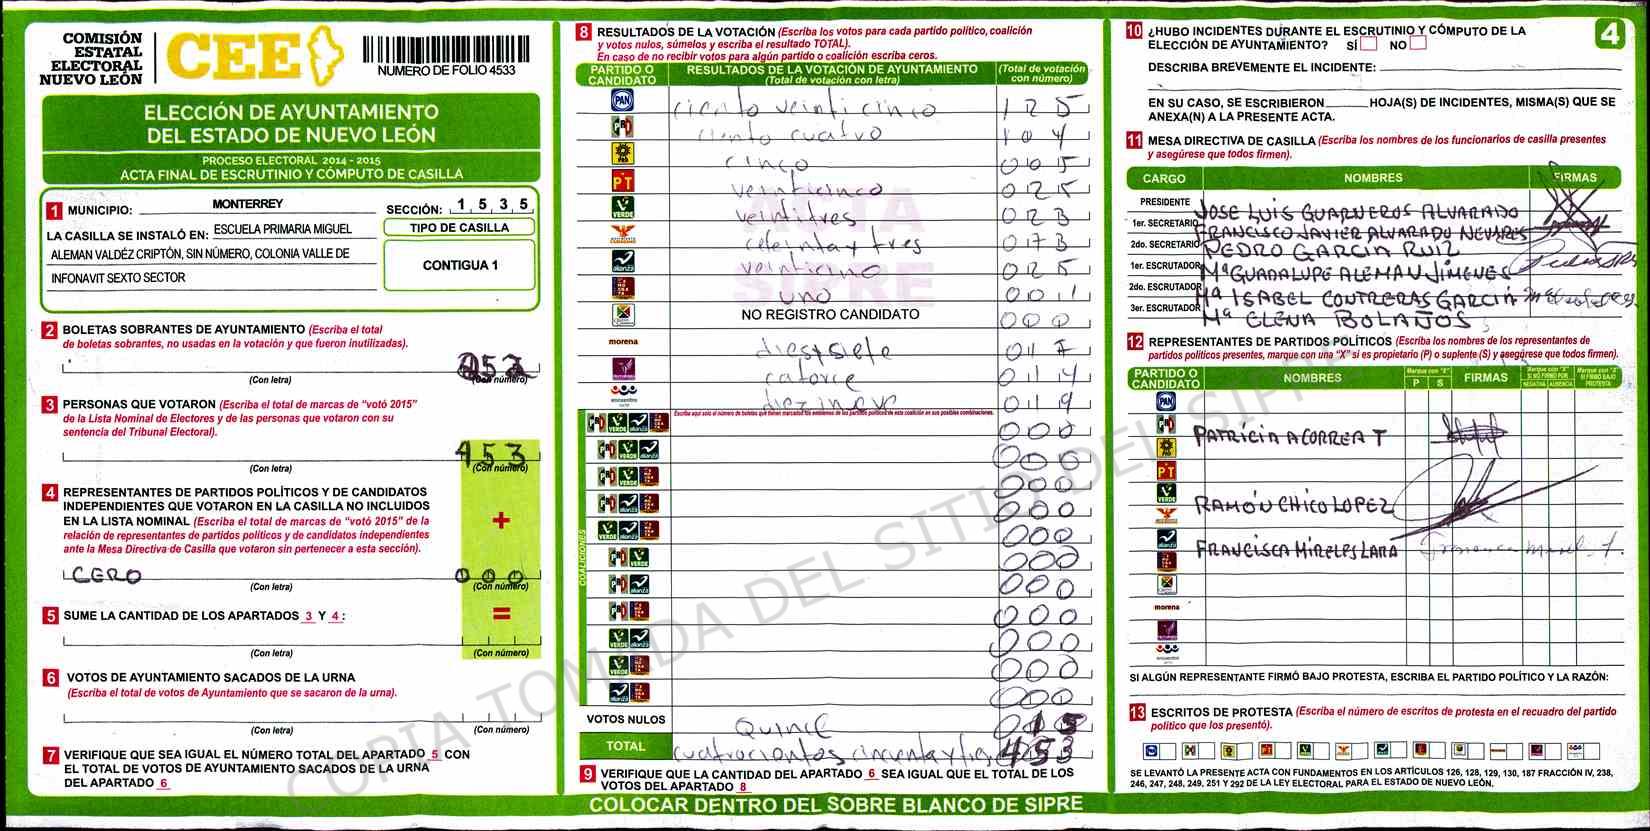 COMISIÓN
ESTATAL
ELECTORAL
NUEVO LEÓN
CEE
NUMERO DE FOLIO 4533
ELECCIÓN DE AYUNTAMIENTO
DEL ESTADO DE NUEVO LEÓN
PROCESO ELECTORAL 2014 - 2015
ACTA FINAL DE ESCRUTINIO Y CÓMPUTO DE CASILLA
1 MUNICIPIO: MONTERREY SECCIÓN: 1 5 3 5
LA CASILLA SE INSTALÓ EN: ESCUELA PRIMARIA MIGUEL
ALEMAN VALDÉZ CRIPTÓN, SIN NÚMERO, COLONIA VALLE DE
INFONAVIT SEXTO SECTOR
TIPO DE CASILLA
CONTIGUA 1
2 BOLETAS SOBRANTES DE AYUNTAMIENTO (Escriba el total
de boletas sobrantes, no usadas en la votación y que fueron inutilizadas).
(Con letra) (Con número)
3 PERSONAS QUE VOTARON (Escriba el total de marcas de "votó 2015"
de la Lista Nominal de Electores y de las personas que votaron con su
sentencia del Tribunal Electoral).
453
(Con letra) (Con número)
4 REPRESENTANTES DE PARTIDOS POLÍTICOS Y DE CANDIDATOS
INDEPENDIENTES QUE VOTARON EN LA CASILLA NO INCLUIDOS
EN LA LISTA NOMINAL (Escriba el total de marcas de "votó 2015" de la
relación de representantes de partidos políticos y de candidatos independientes
ante la Mesa Directiva de Casilla que votaron sin pertenecer a esta sección).
+
CERO 000
(Con letra) (Con número)
5 SUME LA CANTIDAD DE LOS APARTADOS 3 Y 4:
=
(Con letra) (Con número)
6 VOTOS DE AYUNTAMIENTO SACADOS DE LA URNA
(Escriba el total de votos de Ayuntamiento que se sacaron de la urna).
(Con letra) (Con número)
7 VERIFIQUE QUE SEA IGUAL EL NÚMERO TOTAL DEL APARTADO 5 CON
EL TOTAL DE VOTOS DE AYUNTAMIENTO SACADOS DE LA URNA
DEL APARTADO 6
8 RESULTADOS DE LA VOTACIÓN (Escriba los votos para cada partido político, coalición
y votos nulos, súmelos y escriba el resultado TOTAL).
En caso de no recibir votos para algún partido o coalición escriba ceros.
PARTIDO O CANDIDATO RESULTADOS DE LA VOTACIÓN DE AYUNTAMIENTO (Total de votación con letra) (Total de votación con número)
PAN ciento veinti cinco 125
PRI ciento cuatro 104
PRD cinco 005
PT veinticinco 025
VERDE veintitres 023
setenta y tres 073
alianza veinticinco 025
uno 001
NO REGISTRO CANDIDATO 000
morena diesysiete 017
catorce 014
encuentro diezinove 019
Escriba aquí solo el número de boletas que tienen marcados los emblemas de los partidos políticos de esta coalición en sus posibles combinaciones.
COALICIONES
000
000
000
000
000
000
000
000
000
000
000
VOTOS NULOS Quince 015
TOTAL cuatrocientos cincuenta y tres 453
9 VERIFIQUE QUE LA CANTIDAD DEL APARTADO 6 SEA IGUAL QUE EL TOTAL DE LOS
VOTOS DEL APARTADO 8
COLOCAR DENTRO DEL SOBRE BLANCO DE SIPRE
ACTA
SIPRE
COPIA TOMADA DEL SITIO DEL SIPRE
4
10 ¿HUBO INCIDENTES DURANTE EL ESCRUTINIO Y CÓMPUTO DE LA
ELECCIÓN DE AYUNTAMIENTO? SÍ NO
DESCRIBA BREVEMENTE EL INCIDENTE:
EN SU CASO, SE ESCRIBIERON HOJA(S) DE INCIDENTES, MISMA(S) QUE SE
ANEXA(N) A LA PRESENTE ACTA.
11 MESA DIRECTIVA DE CASILLA (Escriba los nombres de los funcionarios de casilla presentes
y asegúrese que todos firmen).
CARGO NOMBRES FIRMAS
PRESIDENTE JOSE LUIS GUARNEROS ALVARADO
1er. SECRETARIO FRANCISCO JAVIER ALVARADO NEVARES
2do. SECRETARIO PEDRO GARCIA RUIZ
1er. ESCRUTADOR Mª GUADALUPE ALEMAN JIMENES
2do. ESCRUTADOR Mª ISABEL CONTRERAS GARCIA
3er. ESCRUTADOR Mª ELENA BOLAÑOS
12 REPRESENTANTES DE PARTIDOS POLÍTICOS (Escriba los nombres de los representantes de
partidos políticos presentes, marque con una "X" si es propietario (P) o suplente (S) y asegúrese que todos firmen).
PARTIDO O CANDIDATO NOMBRES Marque con "X" P S FIRMAS Marque con "X" SI NO FIRMÓ POR NEGATIVA AUSENCIA Marque con "X" SI FIRMÓ BAJO PROTESTA
PAN
PATRICIA A CORREA T
PT
VERDE RAMÓN CHICO LOPEZ
alianza FRANCISCA MIRELES LARA
morena
encuentro
SI ALGÚN REPRESENTANTE FIRMÓ BAJO PROTESTA, ESCRIBA EL PARTIDO POLÍTICO Y LA RAZÓN:
13 ESCRITOS DE PROTESTA (Escriba el número de escritos de protesta en el recuadro del partido
político que los presentó).
SE LEVANTÓ LA PRESENTE ACTA CON FUNDAMENTOS EN LOS ARTÍCULOS 126, 128, 129, 130, 187 FRACCIÓN IV, 238,
246, 247, 248, 249, 251 Y 292 DE LA LEY ELECTORAL PARA EL ESTADO DE NUEVO LEÓN.